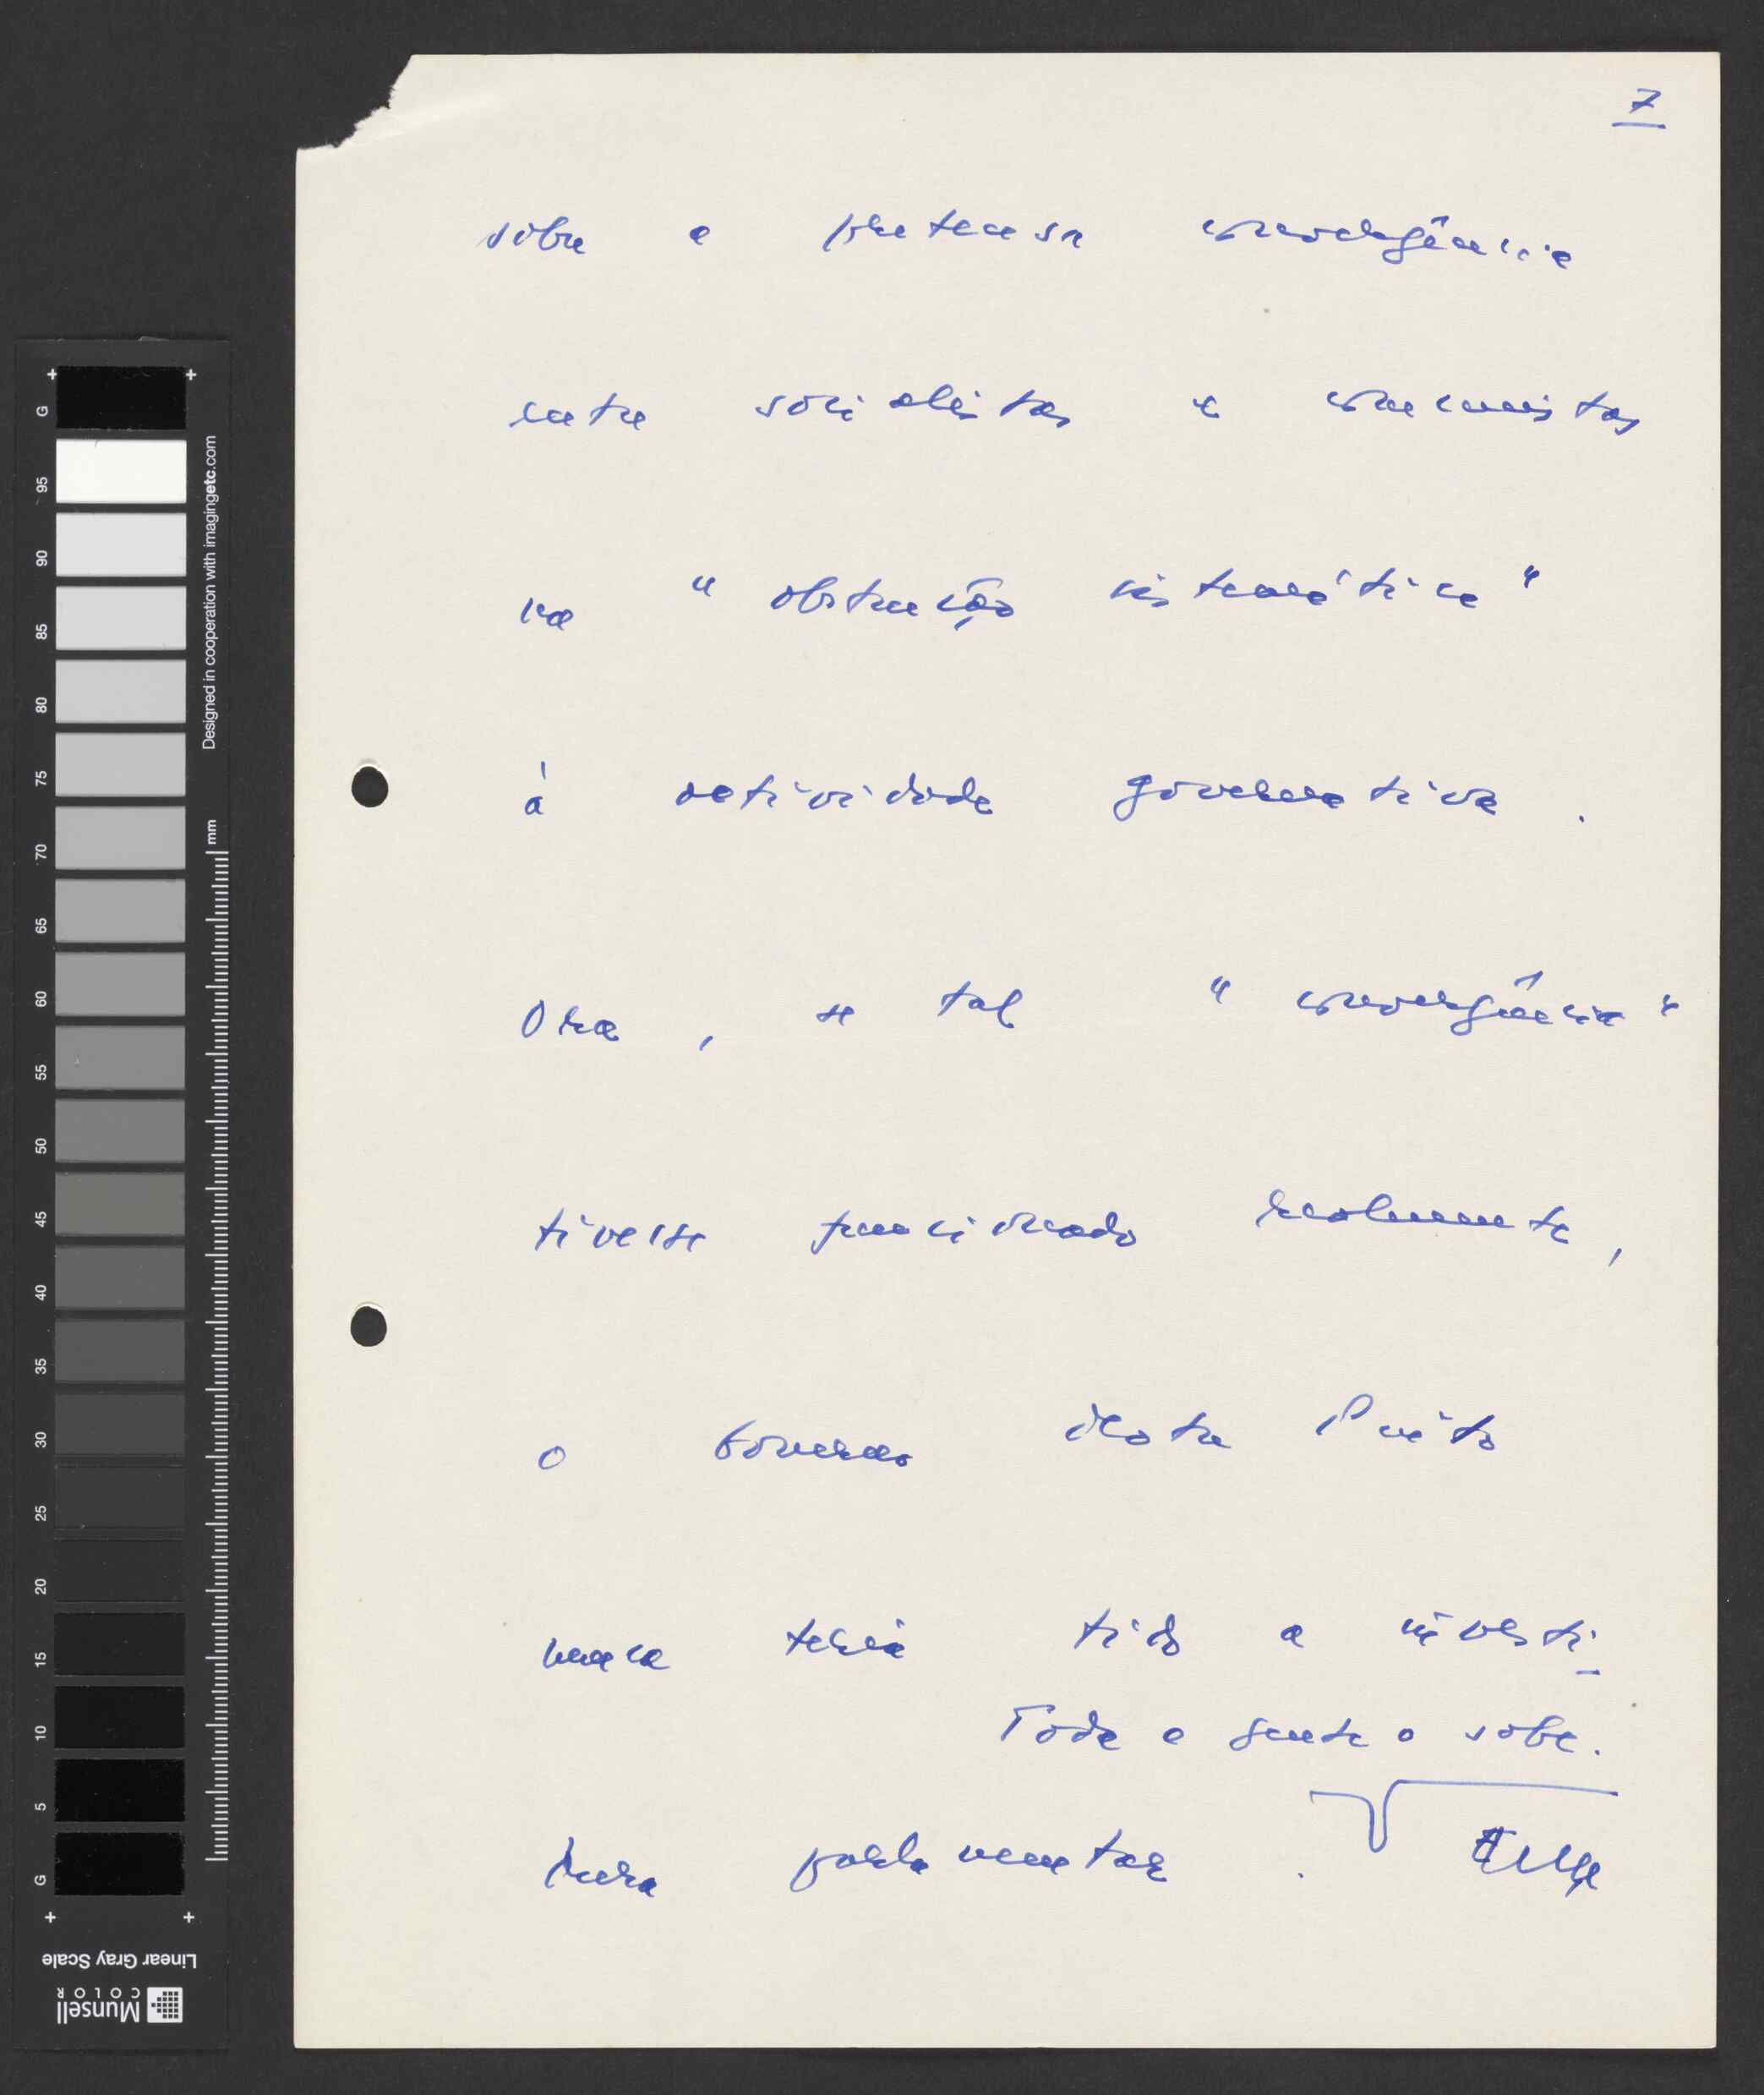 7
sobre a pretensa convergência
entre socialistas e comunistas
na "obstrução sistemática"
à actividade governativa.
Ora, se tal "convergência"
tivesse funcionado realmente,
o Governo Mota Pinto
nunca teria tido a investi-
dura parlamentar. Toda a gente o sabe.
G
95
90
85
80
75
70
65
60
55
50
45
40
35
30
25
20
15
10
5
G
Designed in cooperation with imagingetc.com
mm
Linear Gray Scale
Munsell
COLOR